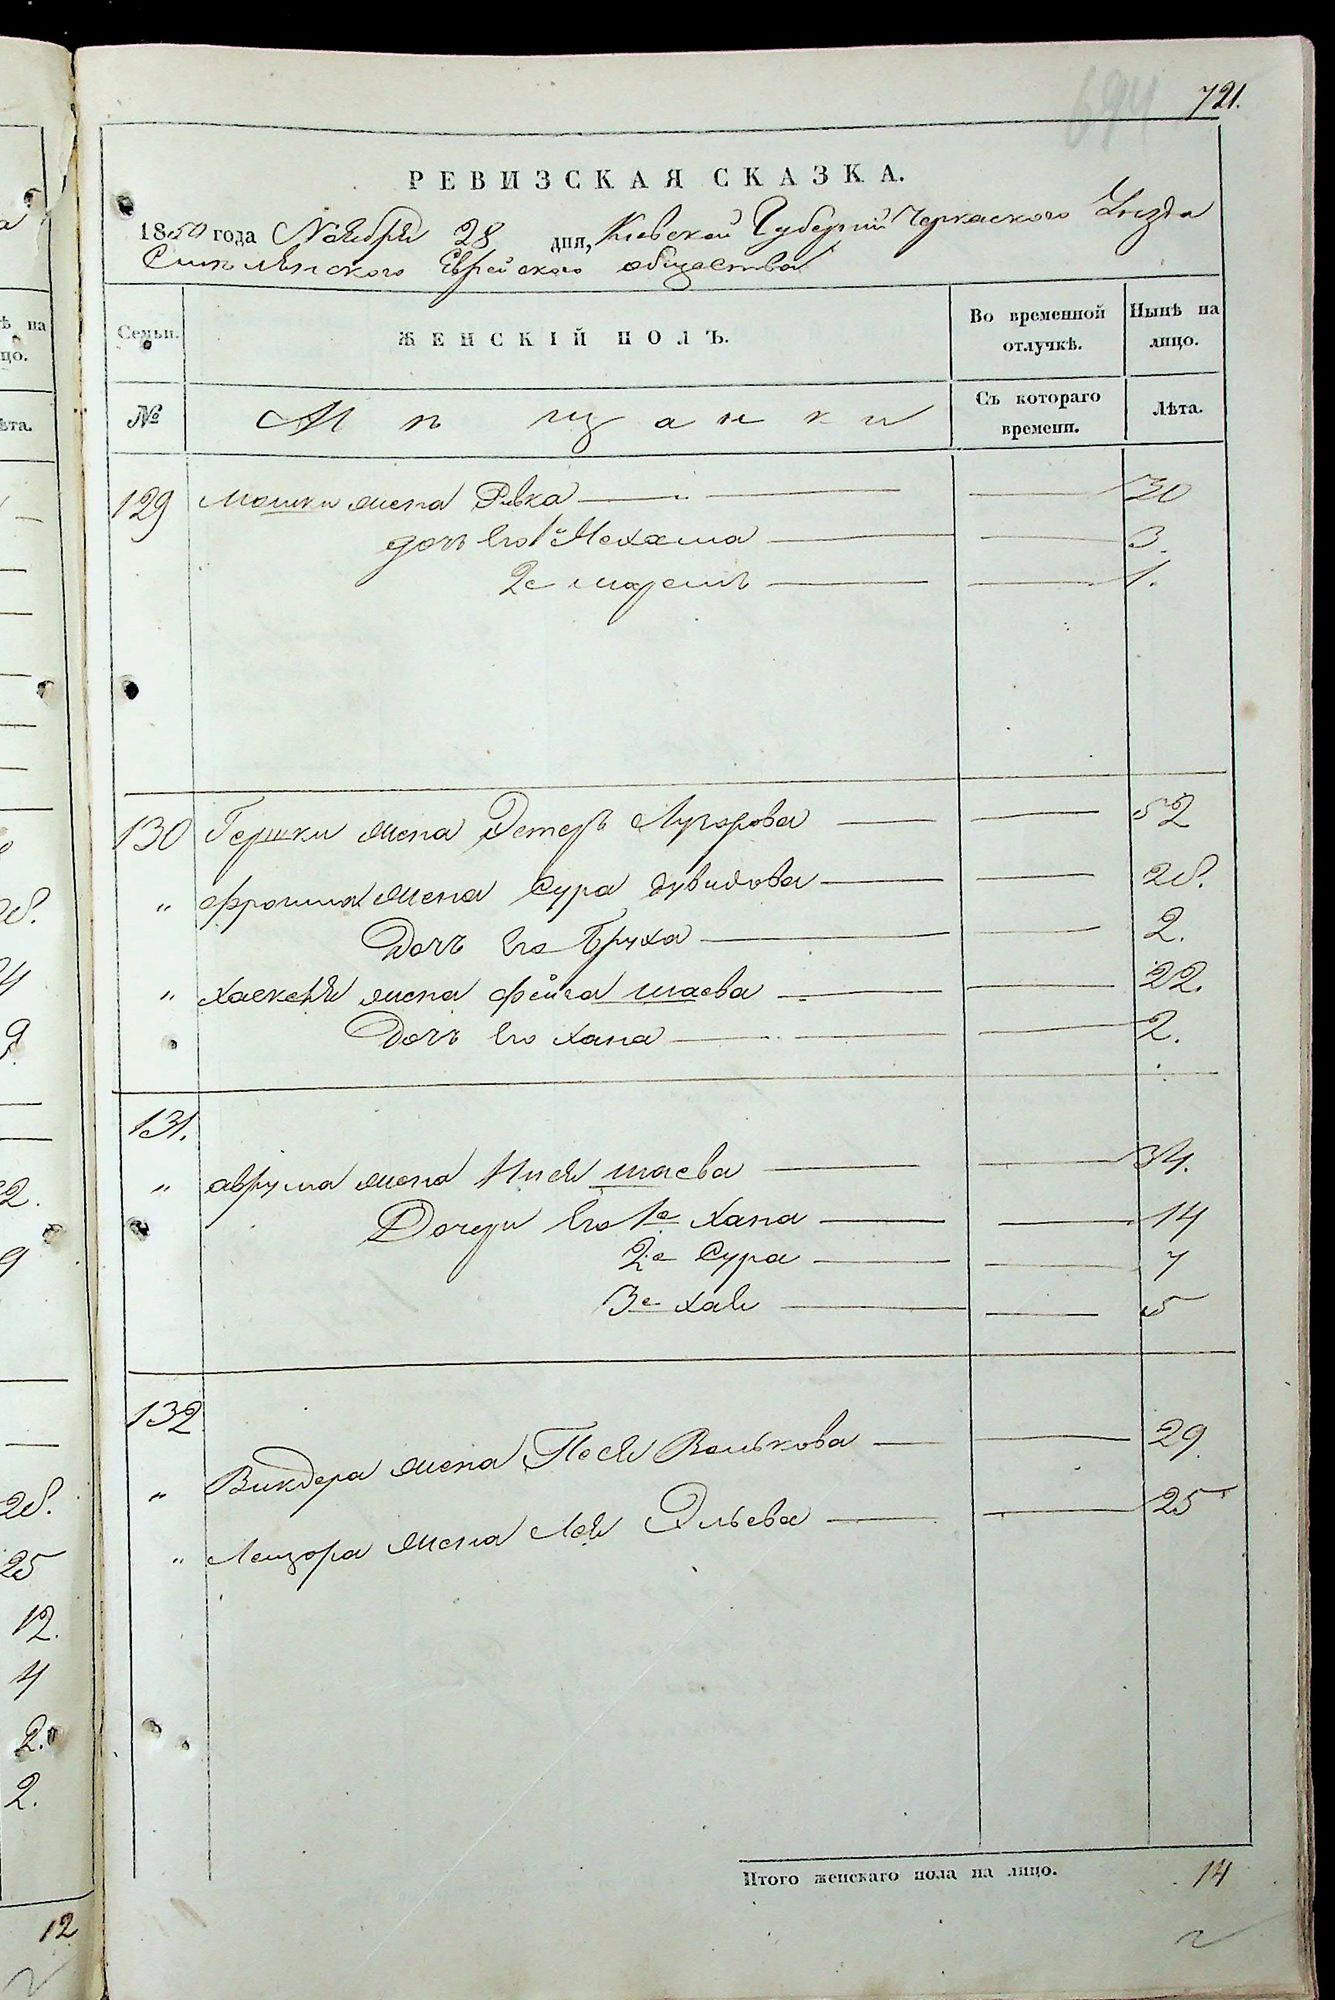 694 721.
РЕВИЗСКАЯ СКАЗКА.
1850 года Ноября 28 дня, Киевской Губернии Черкаского Уезда
Смилянского Еврейского общества
Семьи. ЖЕНСКІЙ ПОЛЪ. Во временной отлучкѣ. Нынѣ на лицо.
№ Мѣщанки Съ котораго времени. Лѣта.
129 Мошки жена Ривка — — 30
дочь Его 1я Нехама — — 3.
2е — — 1.
130 Гершки жена Эстеръ — — 52
" Фроима жена Сура Дувидова — — 28.
Дочь Его Бруха — — 2.
" Хаскеля жена Фейга Шаева — — 22.
" Дочь Его Хана — — 2.
131.
" Аврума жена Шаева — — 34.
Дочери Его 1е Хана — — 14
2е Сура — — 7
3е Хая — — 5
132
" Вигдера жена Песя Волькова — — 29
" Лейзора жена Лея Эльева — — 25
Итого женскаго пола на лицо. 14
28.
24
9
9
28.
25
12.
4
2.
2.
12